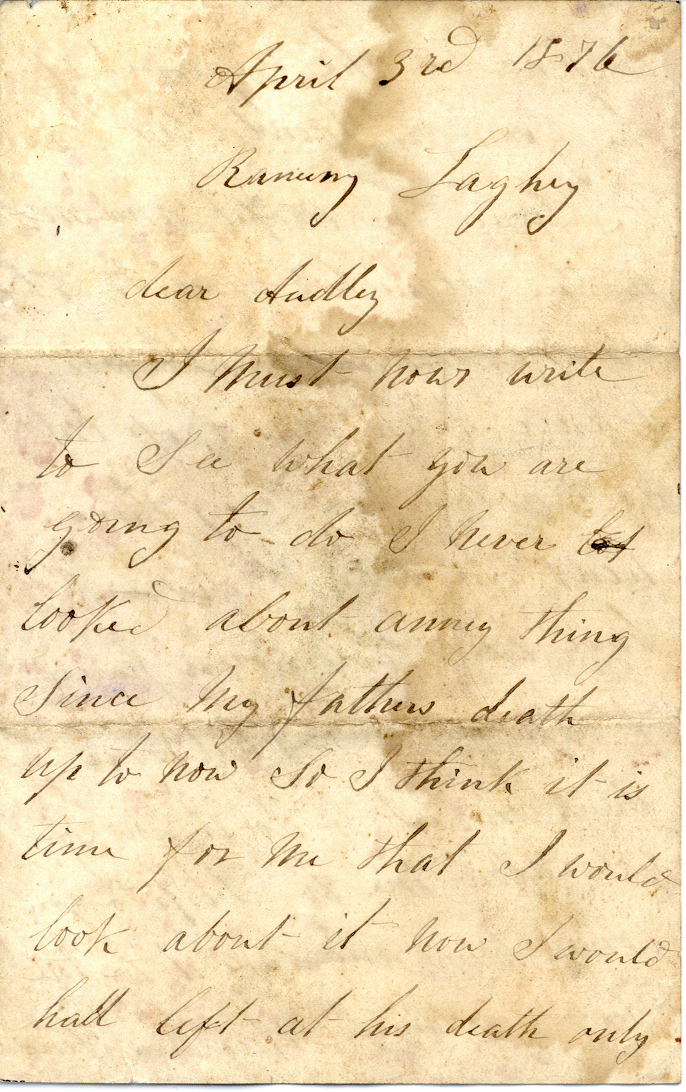 April 3rd 1876
Raneny Laghey
dear Audley
I must now write
to See what you are
going to do I never
looked about anney thing
Since My fathers death
up to now So I think it is
time for me that I would
look about it now I would
hall left at his death only